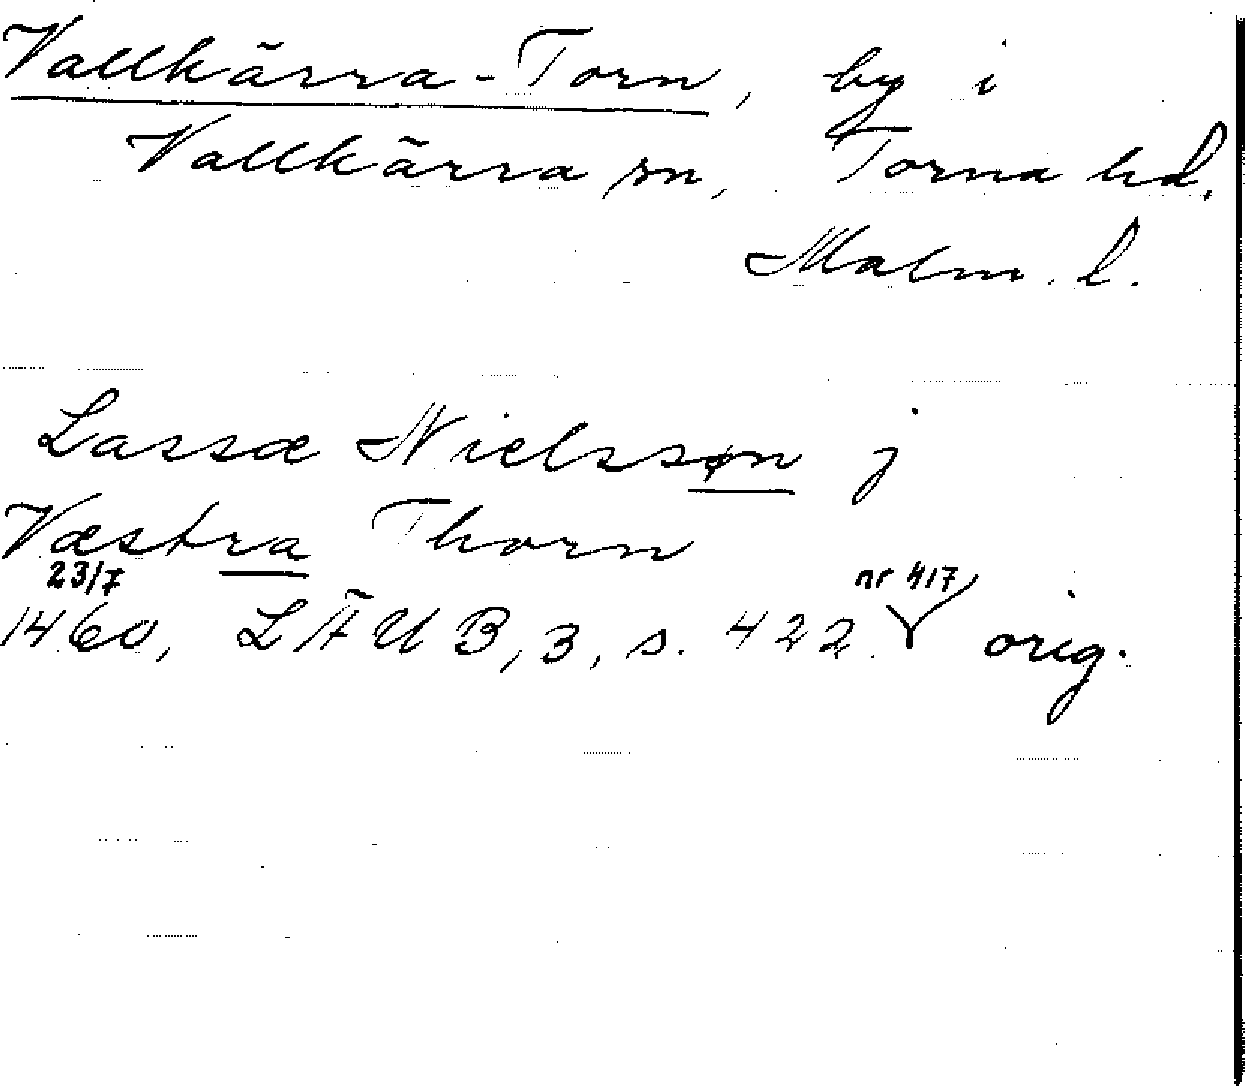 Vallkärra-Torn, by i
Vallkärra sn, Torna hd.
Malm. l.
Lassæ Nielssøn j
Væstra Thorn
23/7 nr 417
1460, LÄUB, 3, s. 422. orig.